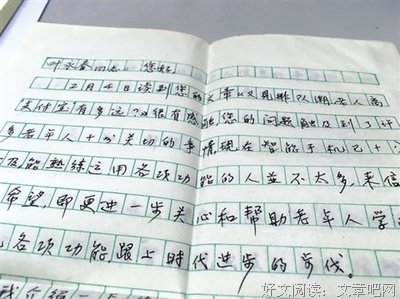 叶永春同志 您好
12月4日读到您的文章《又见排队潮,老人离
支付宝有多远?》很有感触,您的问题触及到了许
多老年人十分关切的事情,现在智能手机已十
及,能熟练运用各项功能的人並不太多,来信
希望,即更进一步关心和帮助老年人学
各项功能跟上时代进步的步伐。
我介绍一
好文阅读:文章吧网